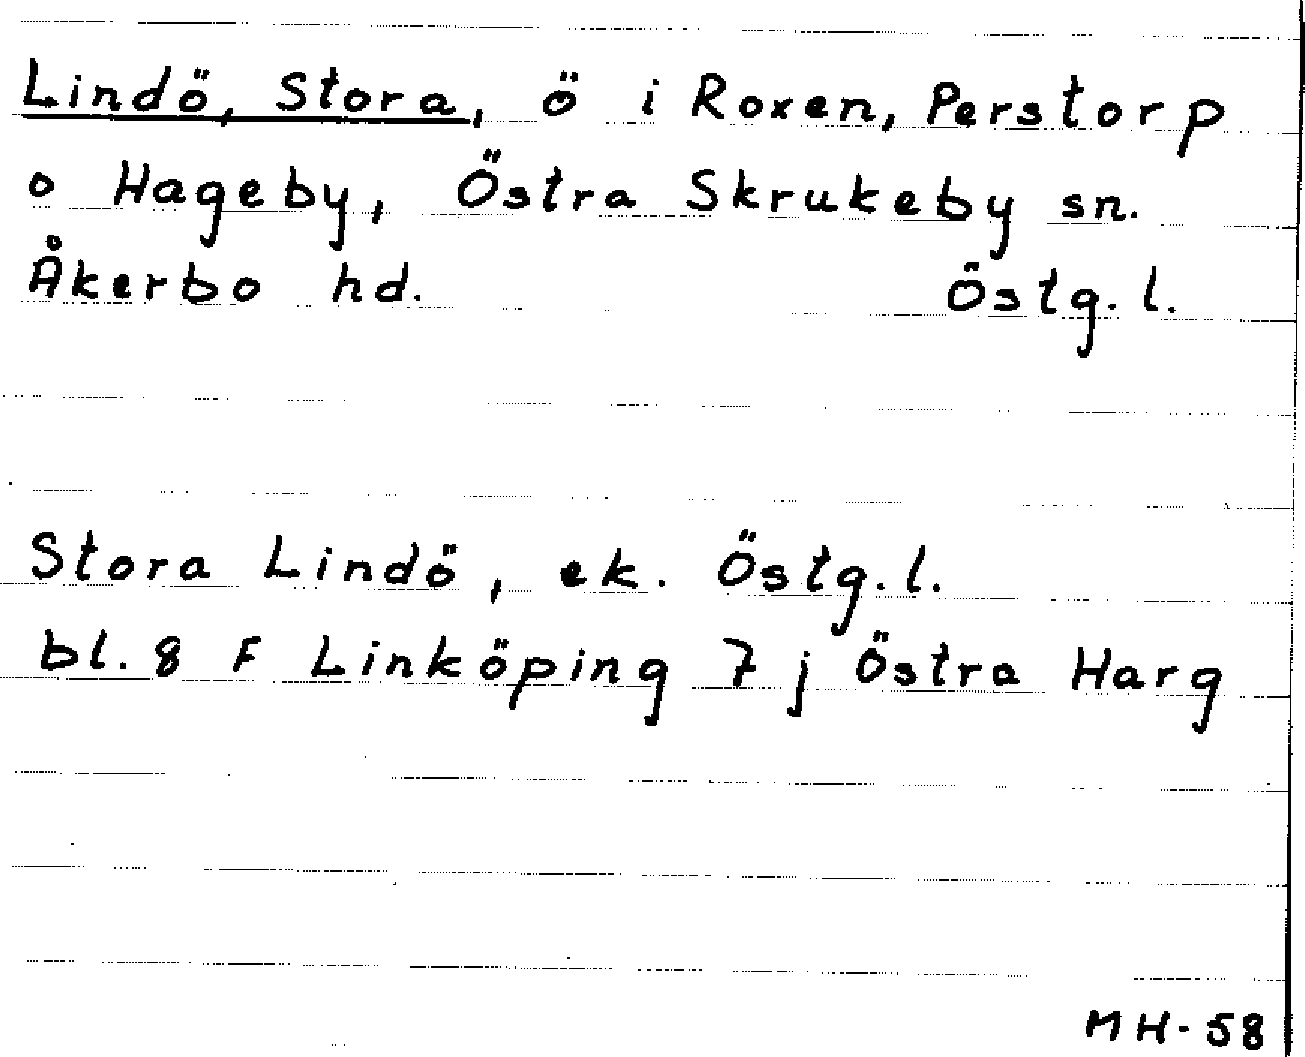 Lindö, Stora, ö i Roxen, Perstorp
o Hageby, Östra Skrukeby sn.
Åkerbo hd. Östg. l.
Stora Lindö, ek. Östg. l.
bl. 8 F Linköping 7 j Östra Harg
MH-58